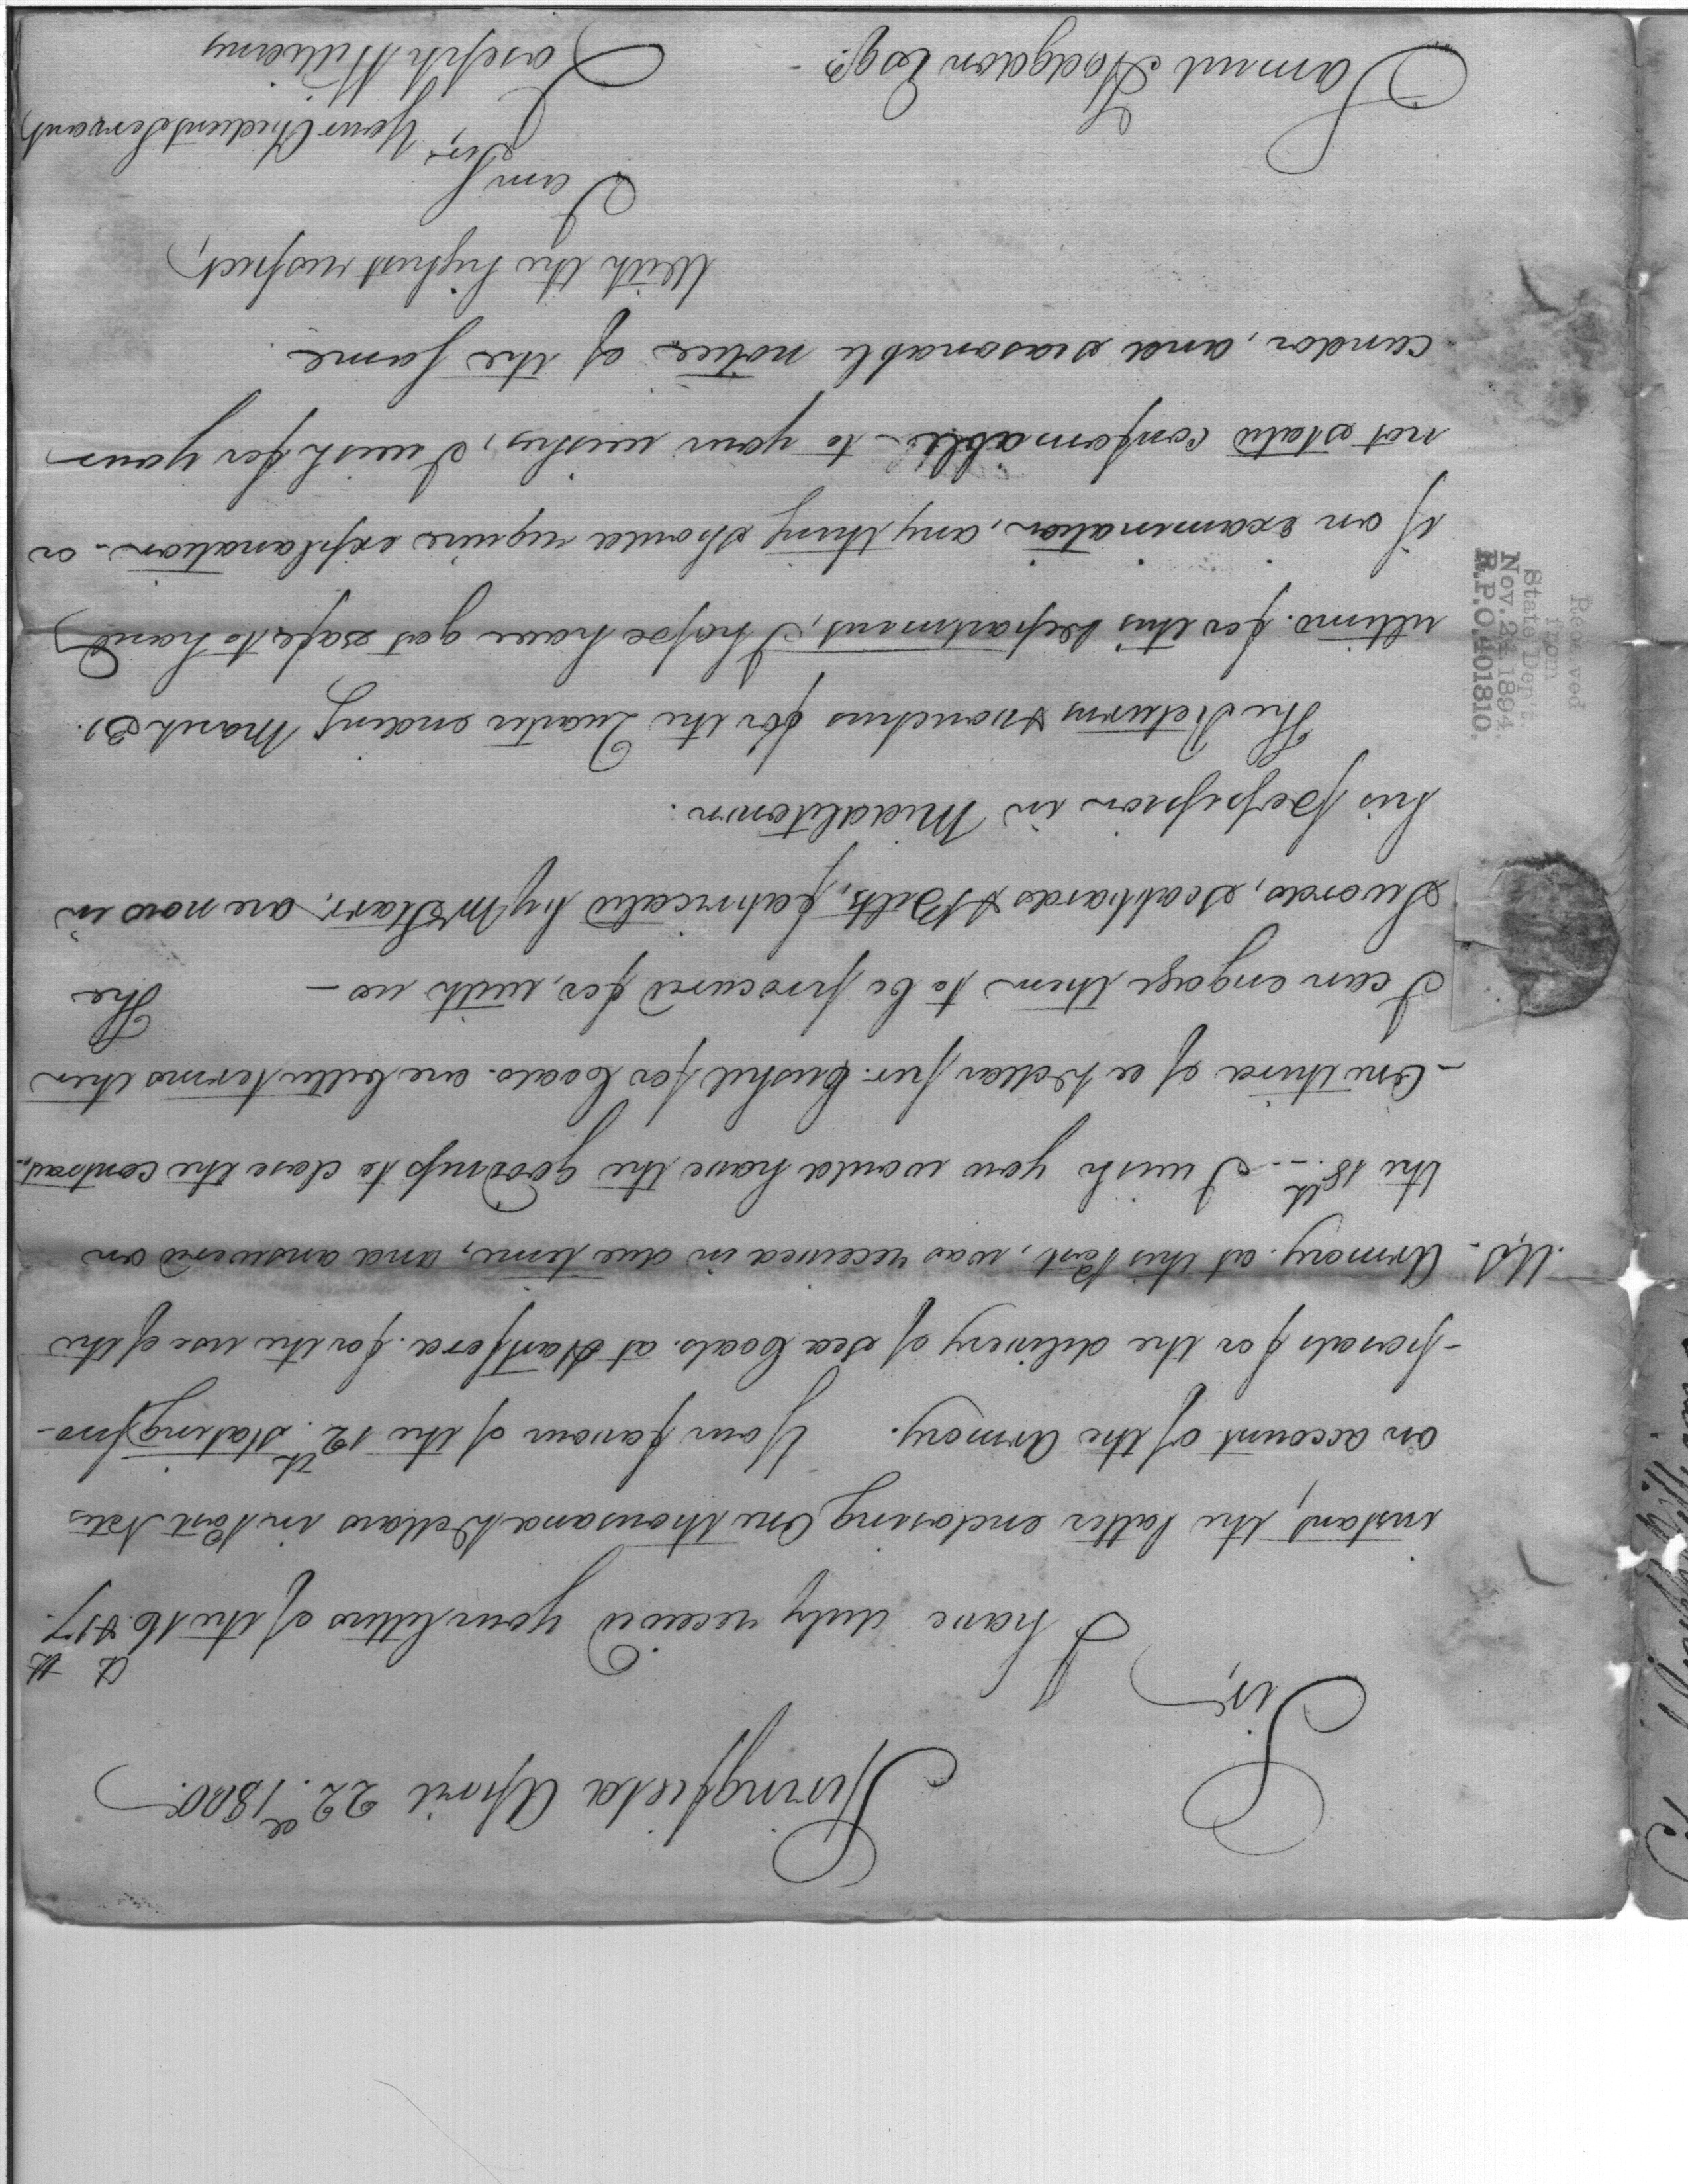 Springfield April 22.d 1800.
Sir,
I have duly received your letters of the 16th & 17th
instant, the latter enclosing One thousand Dollars in Post Notes
on account of the Armory. Your favour of the 12th. stating pro-
-posals for the delivery of Sea Coals. at Hartford. for the use of the
U,S. Armory. at this Post, was received in due time, and answered on
the 18th. - I wish you would have the goodness to close the contract,
- One third of a Dollar per. bushel for Coals. are better terms then
I can engage them to be procured for, with us - The
Swords, Scabbards & Belts, fabricated by Mr Starr. are now in
his possession in Middletown.
The Returns & vouchers for the Quarter ending March 31.
ultimo. for this Department, I hope have got safe to hand,
if on examination, any thing should require explanation - or
not stated conformable to your wishes, I wish for your
candor, and seasonable notice of the same.
With the highest respect,
I am Sir,
Your Obedient Servant,
Samuel Hodgdon Esqr. - Joseph Williams
Received
from
State Dep't.
Nov. 24 1894
R.P.O. 401810.